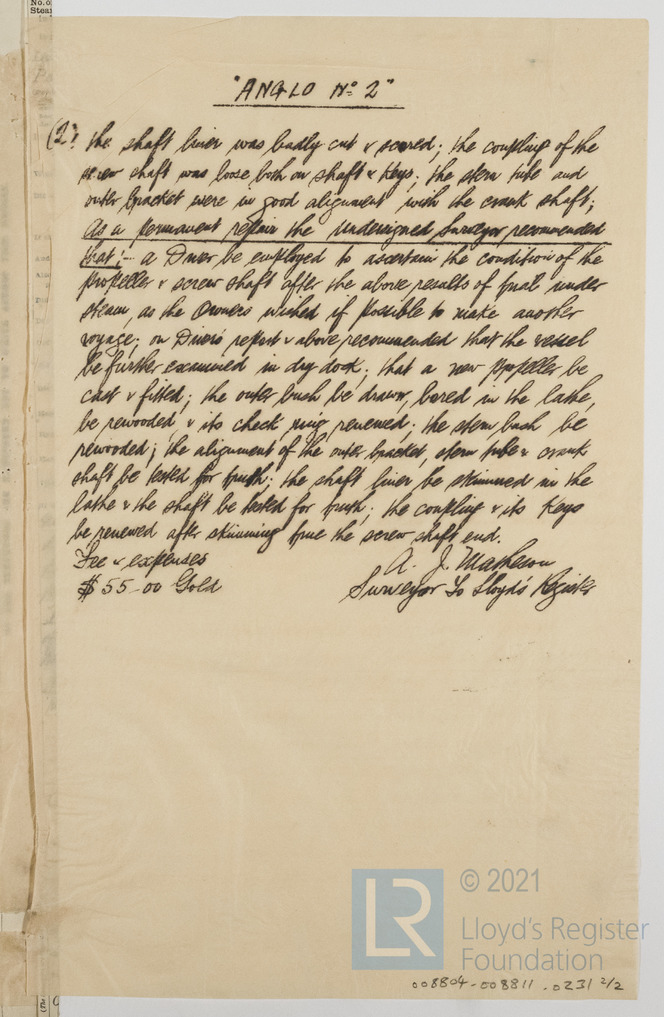 No. o
Stea
"ANGLO No 2"
(2): the shaft liner was badly cut & scored; the coupling of the
screw shaft was loose both on shaft & Keys; the stern tube and
outer bracket were in good alignment with the crank shaft;
As a permanent repair the Undersigned Surveyor recommended
that:- a Diver be employed to ascertain the condition of the
propeller & screw shaft after the above results of trial under
steam, as the Owners wished if possible to make another
voyage; on Diver's report & above, recommended that the vessel
be further examined in dry dock; that a new propeller be
cast & fitted; the outer bush be drawn, bored in the lathe,
be rewooded & its check ring renewed; the stern bush be
rewooded; the alignment of the outer bracket, stern tube & crank
shaft be tested for truth; the shaft liner be skimmed in the
lathe & the shaft be tested for truth; the coupling & its Keys
be renewed after skimming true the screw shaft end.
Fee & expenses
$55-00 Gold
A. J. Matheson
Surveyor To Lloyd's Register
LR
© 2021
Lloyd's Register
Foundation
008804-008811-0231 2/2